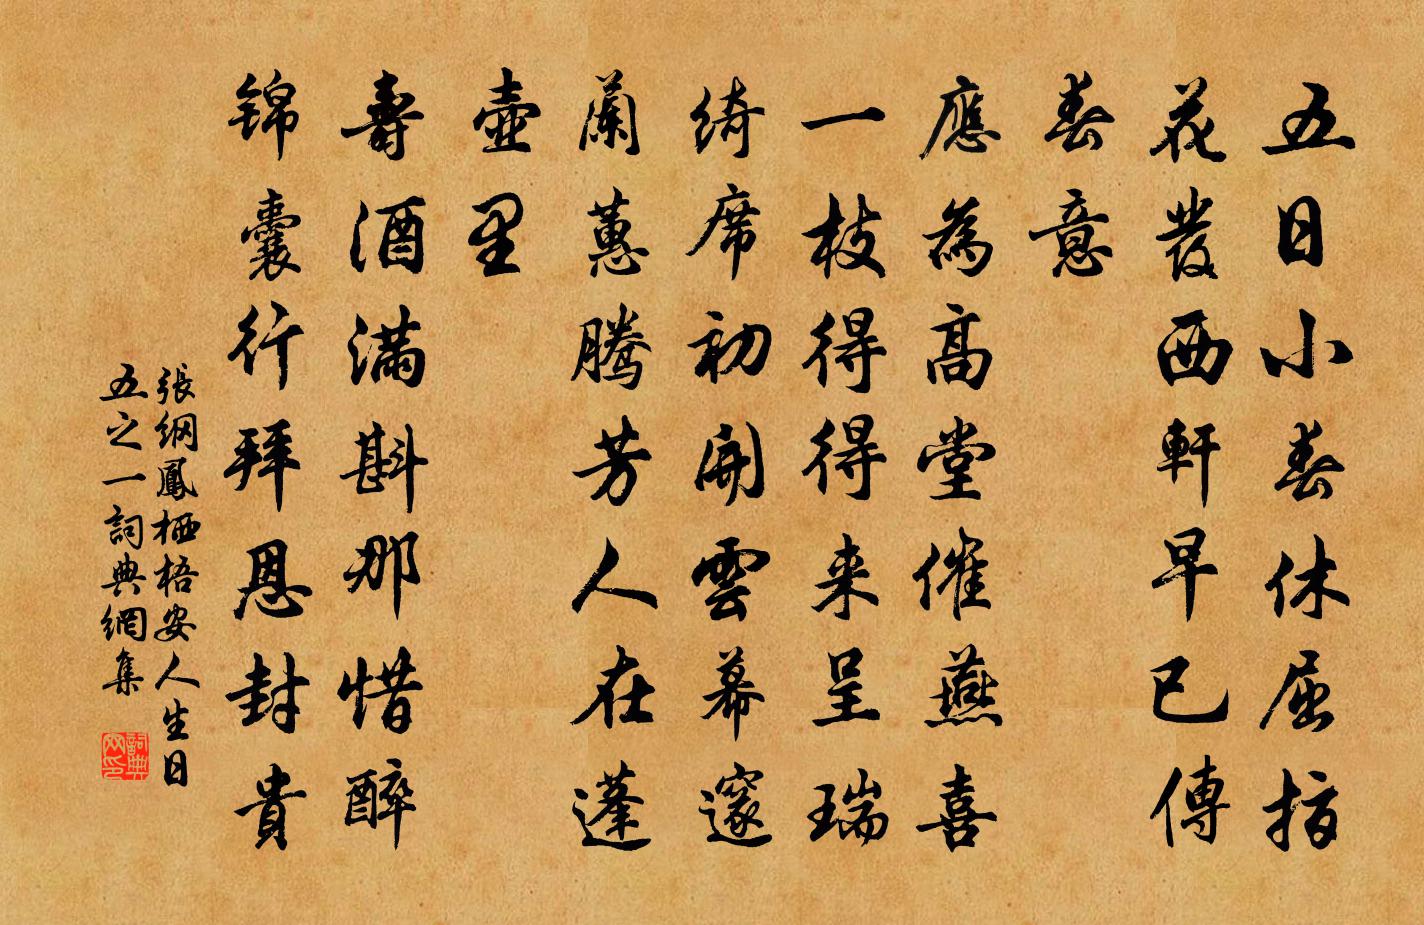 五日小春休屈指
花發西軒早已傳
春意
應為高堂催燕喜
一枝得得来呈瑞
綺席初開雲幕邃
蘭蕙騰芳人在蓬
壺里
壽酒滿斟那惜醉
锦囊行拜恩封貴
張綱鳳栖梧安人生日
五之一詞典網集